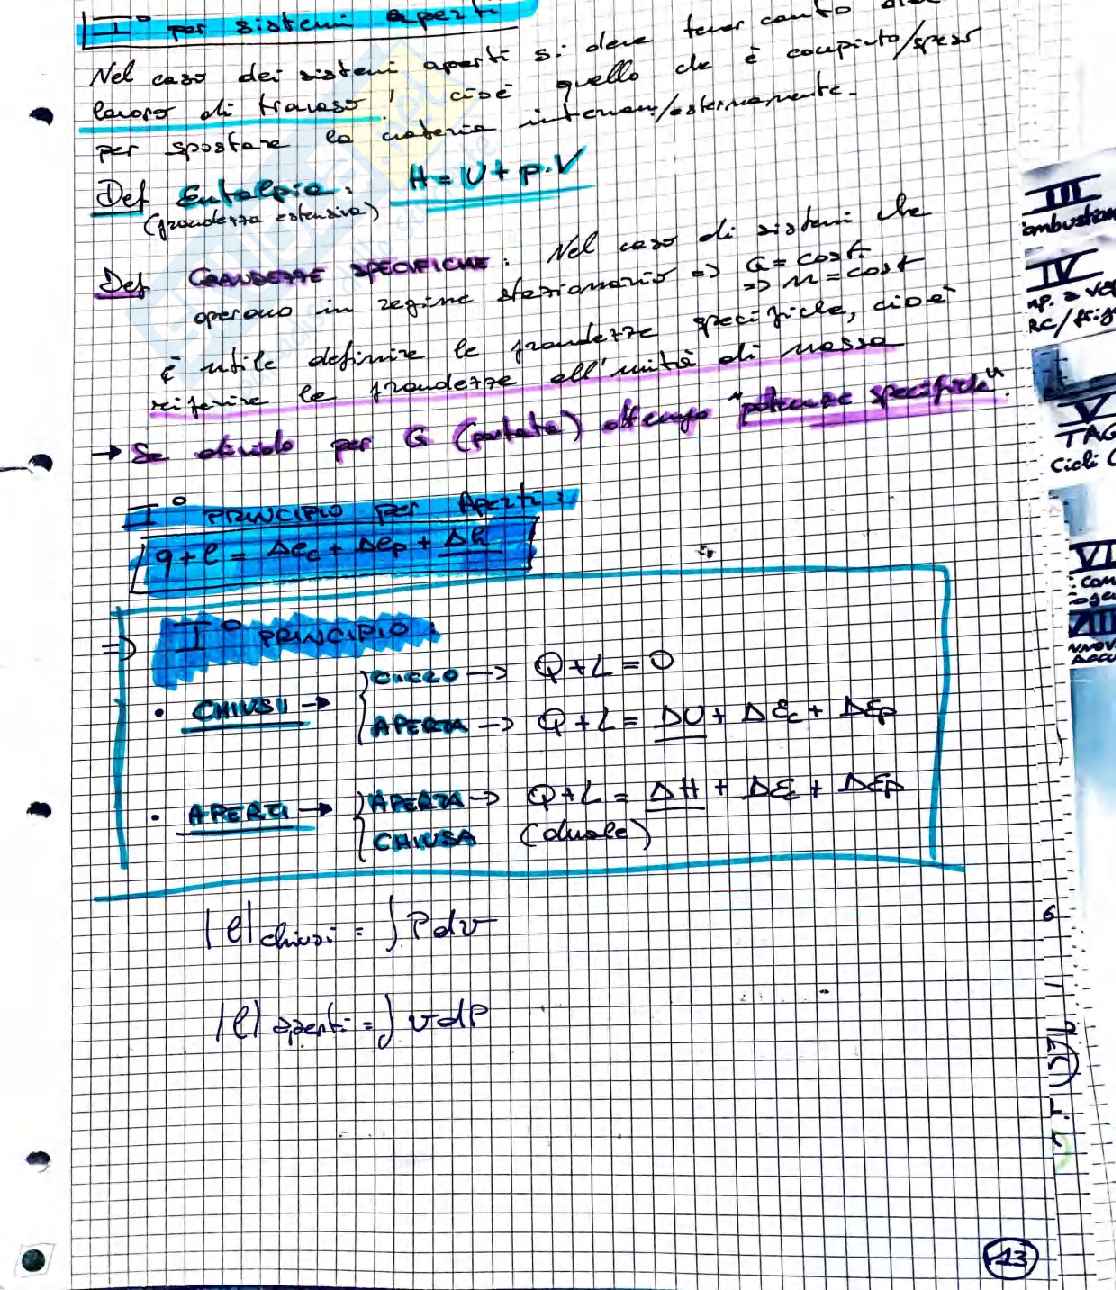 I° per sistemi aperti
Nel caso dei sistemi aperti si deve tener conto del
lavoro di travaso, cioè quello che è compiuto/speso
per spostare la materia internam/esternamente.
Def Entalpia: H = U + p.V
(grandezza estensiva)
Def GRANDEZZE SPECIFICHE: Nel caso di sistemi che
operano in regime stazionario => G = cost.
=> m = cost
è utile definire le grandezze specifiche, cioè
riferire le grandezze all'unità di massa
→ Se divido per G (portata) ottengo "potenze specifiche".
I° PRINCIPIO per Aperti:
q + l = Δec + Δep + Δh
=> I° PRINCIPIO:
• CHIUSI → { CICLO → Q + L = 0
APERTA → Q + L = ΔU + ΔEc + ΔEp
• APERTI → { APERTA → Q + L = ΔH + ΔEc + ΔEp
CHIUSA (duale)
|l| chiusi = ∫ P dv
|l| aperti = ∫ v dP
13
III
IV
RC/frig
V
TAG
Cicli
VI
VIII
6